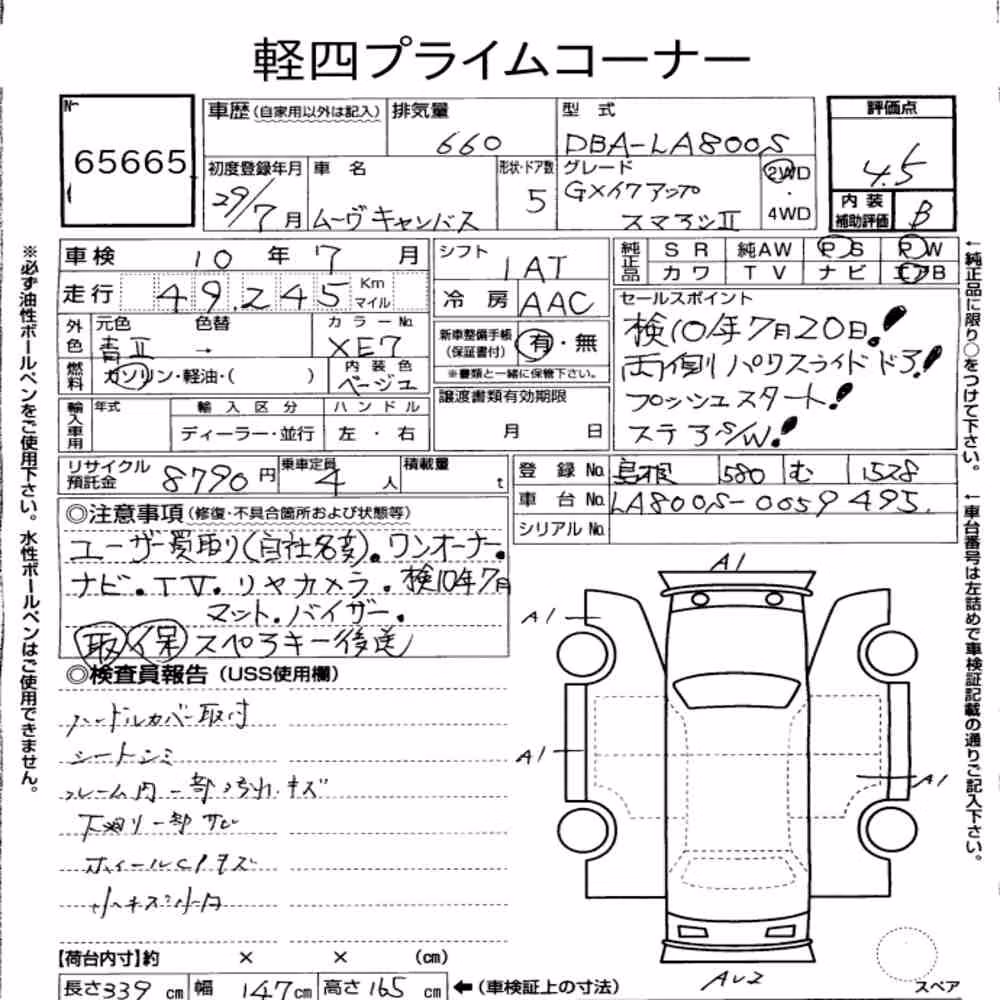 軽四プライムコーナー
No
65665
車歴(自家用以外は記入)
排気量
660
型 式
DBA-LA800S
評価点
4.5
内装
補助評価
B
初度登録年月
29/7月
車 名
ムーヴキャンバス
形状・ドア数
5
グレード
Gメイクアップ
スマアシⅡ
2WD
・
4WD
車検
10年7月
走行
49.245
Km
マイル
シフト
IAT
冷房
AAC
純正品
SR 純AW PS PW
カワ TV ナビ エアB
外色
元色
色替
青Ⅱ →
カラーNo.
XE7
燃料
ガソリン・軽油・( )
内装色
ベージュ
新車整備手帳
(保証書付)
有・無
※書類と一緒に保管下さい。
輸入車用
年式
輸入区分
ディーラー・並行
ハンドル
左 ・ 右
譲渡書類有効期限
月 日
セールスポイント
検10年7月20日!
両側パワスライドドア!
プッシュスタート!
ステアS/W!
リサイクル
預託金
8790円
乗車定員
4人
積載量
t
登録No.
島根 580 む 1528
車台No.
LA800S-0059495.
シリアルNo.
◎注意事項(修復・不具合箇所および状態等)
ユーザー買取り(自社名変)。ワンオーナー。
ナビ。TV。リヤカメラ。検10年7月
マット。バイザー。
取 保 スペアキー後送
◎検査員報告(USS使用欄)
ハンドルカバー取付
シートシミ
フレーム内一部汚れ、キズ
下廻り一部サビ
ホイールC1キズ
小キズ
A1
A1
A1
A1
AU2
スペア
【荷台内寸】約 × × (cm)
長さ339cm 幅147cm 高さ165cm
←(車検証上の寸法)
※必ず油性ボールペンをご使用下さい。水性ボールペンはご使用できません。
←純正品に限り○をつけて下さい。
←車台番号は左詰めで車検証記載の通りご記入下さい。